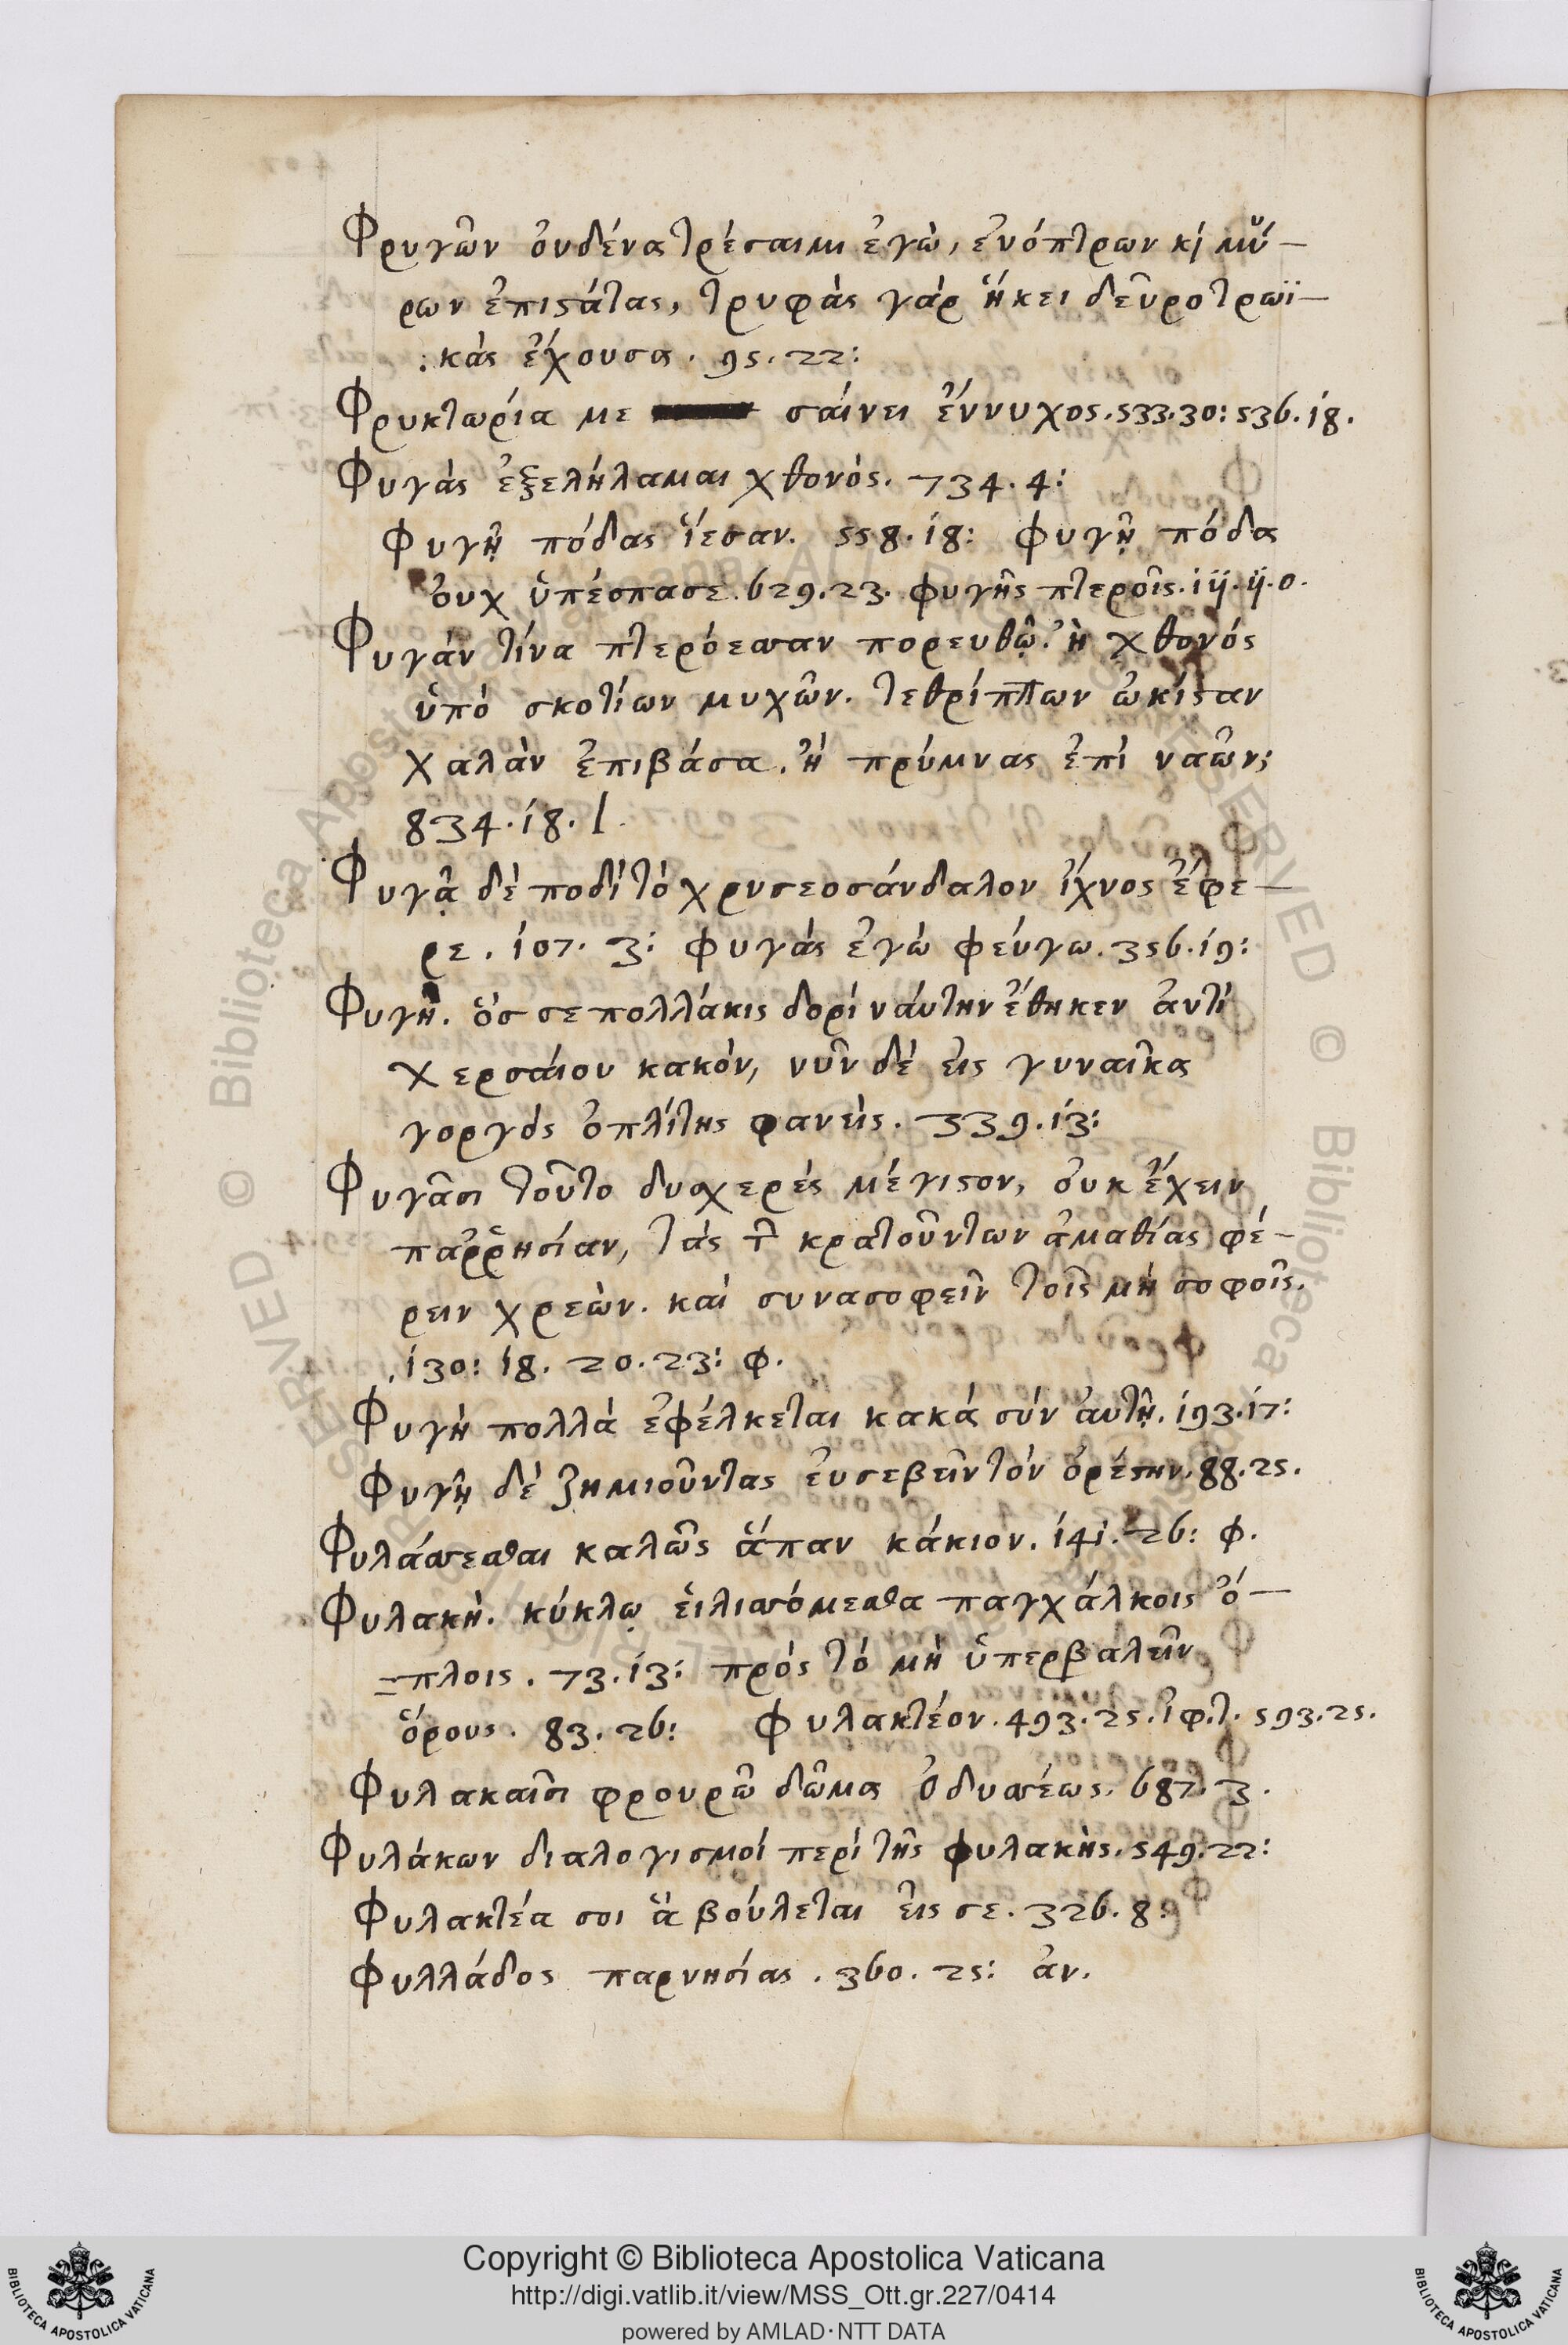 Φρυγῶν οὐδένα τρέσαιμι ἐγώ, ἐνόπτρων κὶ μύ-
ρων ἐπιϛάτας, τρυφὰς γὰρ ἥκει δεῦρο τρωϊ-
κὰς ἔχουσα. 95. 22:
Φρυκτωρία με σαίνει ἔννυχος. 533. 30: 536. 18.
Φυγὰς ἐξελήλαμαι χθονός. 734. 4:
Φυγῇ πόδας ἵεσαν. 558. 18: φυγῇ πόδα
οὐχ ὑπέσπασε. 629. 23. φυγῆς πτεροῖς.
Φυγὰν τίνα πτερόεσσαν πορευθῶ. ἢ χθονὸς
ὑπὸ σκοτίων μυχῶν. τεθρίππων ὠκίϛαν
χαλὰν ἐπιβάσα. ἢ πρύμνας ἐπὶ ναῶν;
834. 18.
Φυγᾷ δὲ ποδὶ τὸ χρυσεοσάνδαλον ἴχνος ἔφε-
ρε. 107. 3: φυγὰς ἐγὼ φεύγω. 356. 19:
Φυγή. ὅσ σε πολλάκις δορὶ ναύτην ἔθηκεν ἀντὶ
χερσαίου κακόν, νῦν δὲ εἰς γυναῖκα
γοργὸς ὁπλίτης φανείς. 339. 13:
Φυγᾶσι τοῦτο δυσχερὲς μέγιϛον, οὐκ ἔχειν
παῤῥησίαν, τὰς τ͂ κρατούντων ἀμαθίας φέ-
ρειν χρεών. καὶ συνασοφεῖν τοῖς μὴ σοφοῖς.
130: 18. 20. 23: φ.
Φυγὴ πολλὰ ἐφέλκεται κακὰ σὺν αὐτῇ. 193. 17:
Φυγῇ δὲ ζημιοῦντας εὐσεβεῖν τὸν ὀρέϛην. 88. 25.
Φυλάσσεσθαι καλῶς ἅπαν κάκιον. 141. 26: φ.
Φυλακή. κύκλῳ εἱλισσόμεσθα παγχάλκοις ὅ-
-πλοις. 73. 13: πρὸς τὸ μὴ ὑπερβαλεῖν
ὅρους. 83. 26: Φυλακτέον. 493. 25. ἰφ.τ. 593. 25.
Φυλακαῖσι φρουρῶ δῶμα Ὀδυσσέως. 687. 3.
Φυλάκων διαλογισμοὶ περὶ τῆς φυλακῆς. 549. 22:
Φυλακτέα σοι ἃ βούλεται εἰς σε. 326. 8:
Φυλλάδος παρνησίας. 360. 25: ἀν.
Copyright © Biblioteca Apostolica Vaticana
http://digi.vatlib.it/view/MSS_Ott.gr.227/0414
powered by AMLAD·NTT DATA